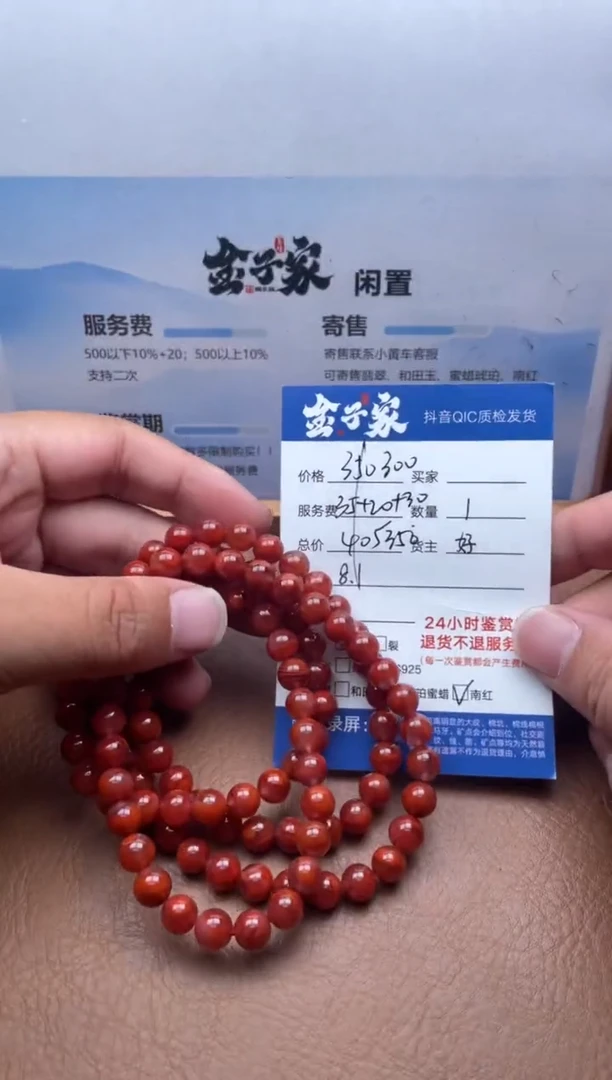 金子家 闲置
服务费
500以下10%+20；500以上10%
支持二次
寄售
寄售联系小黄车客服
可寄售翡翠、和田玉、蜜蜡琥珀、南红
鉴赏期
多限制购买！！
服务费
金子家 抖音QIC质检发货
价格 350 300 买家
服务费 35+20+30 数量 1
总价 405 350 货主 好
8.1
24小时鉴赏
退货不退服务
(每一次鉴赏都会产生费
裂
S925
和田 珀蜜蜡 南红
录屏：